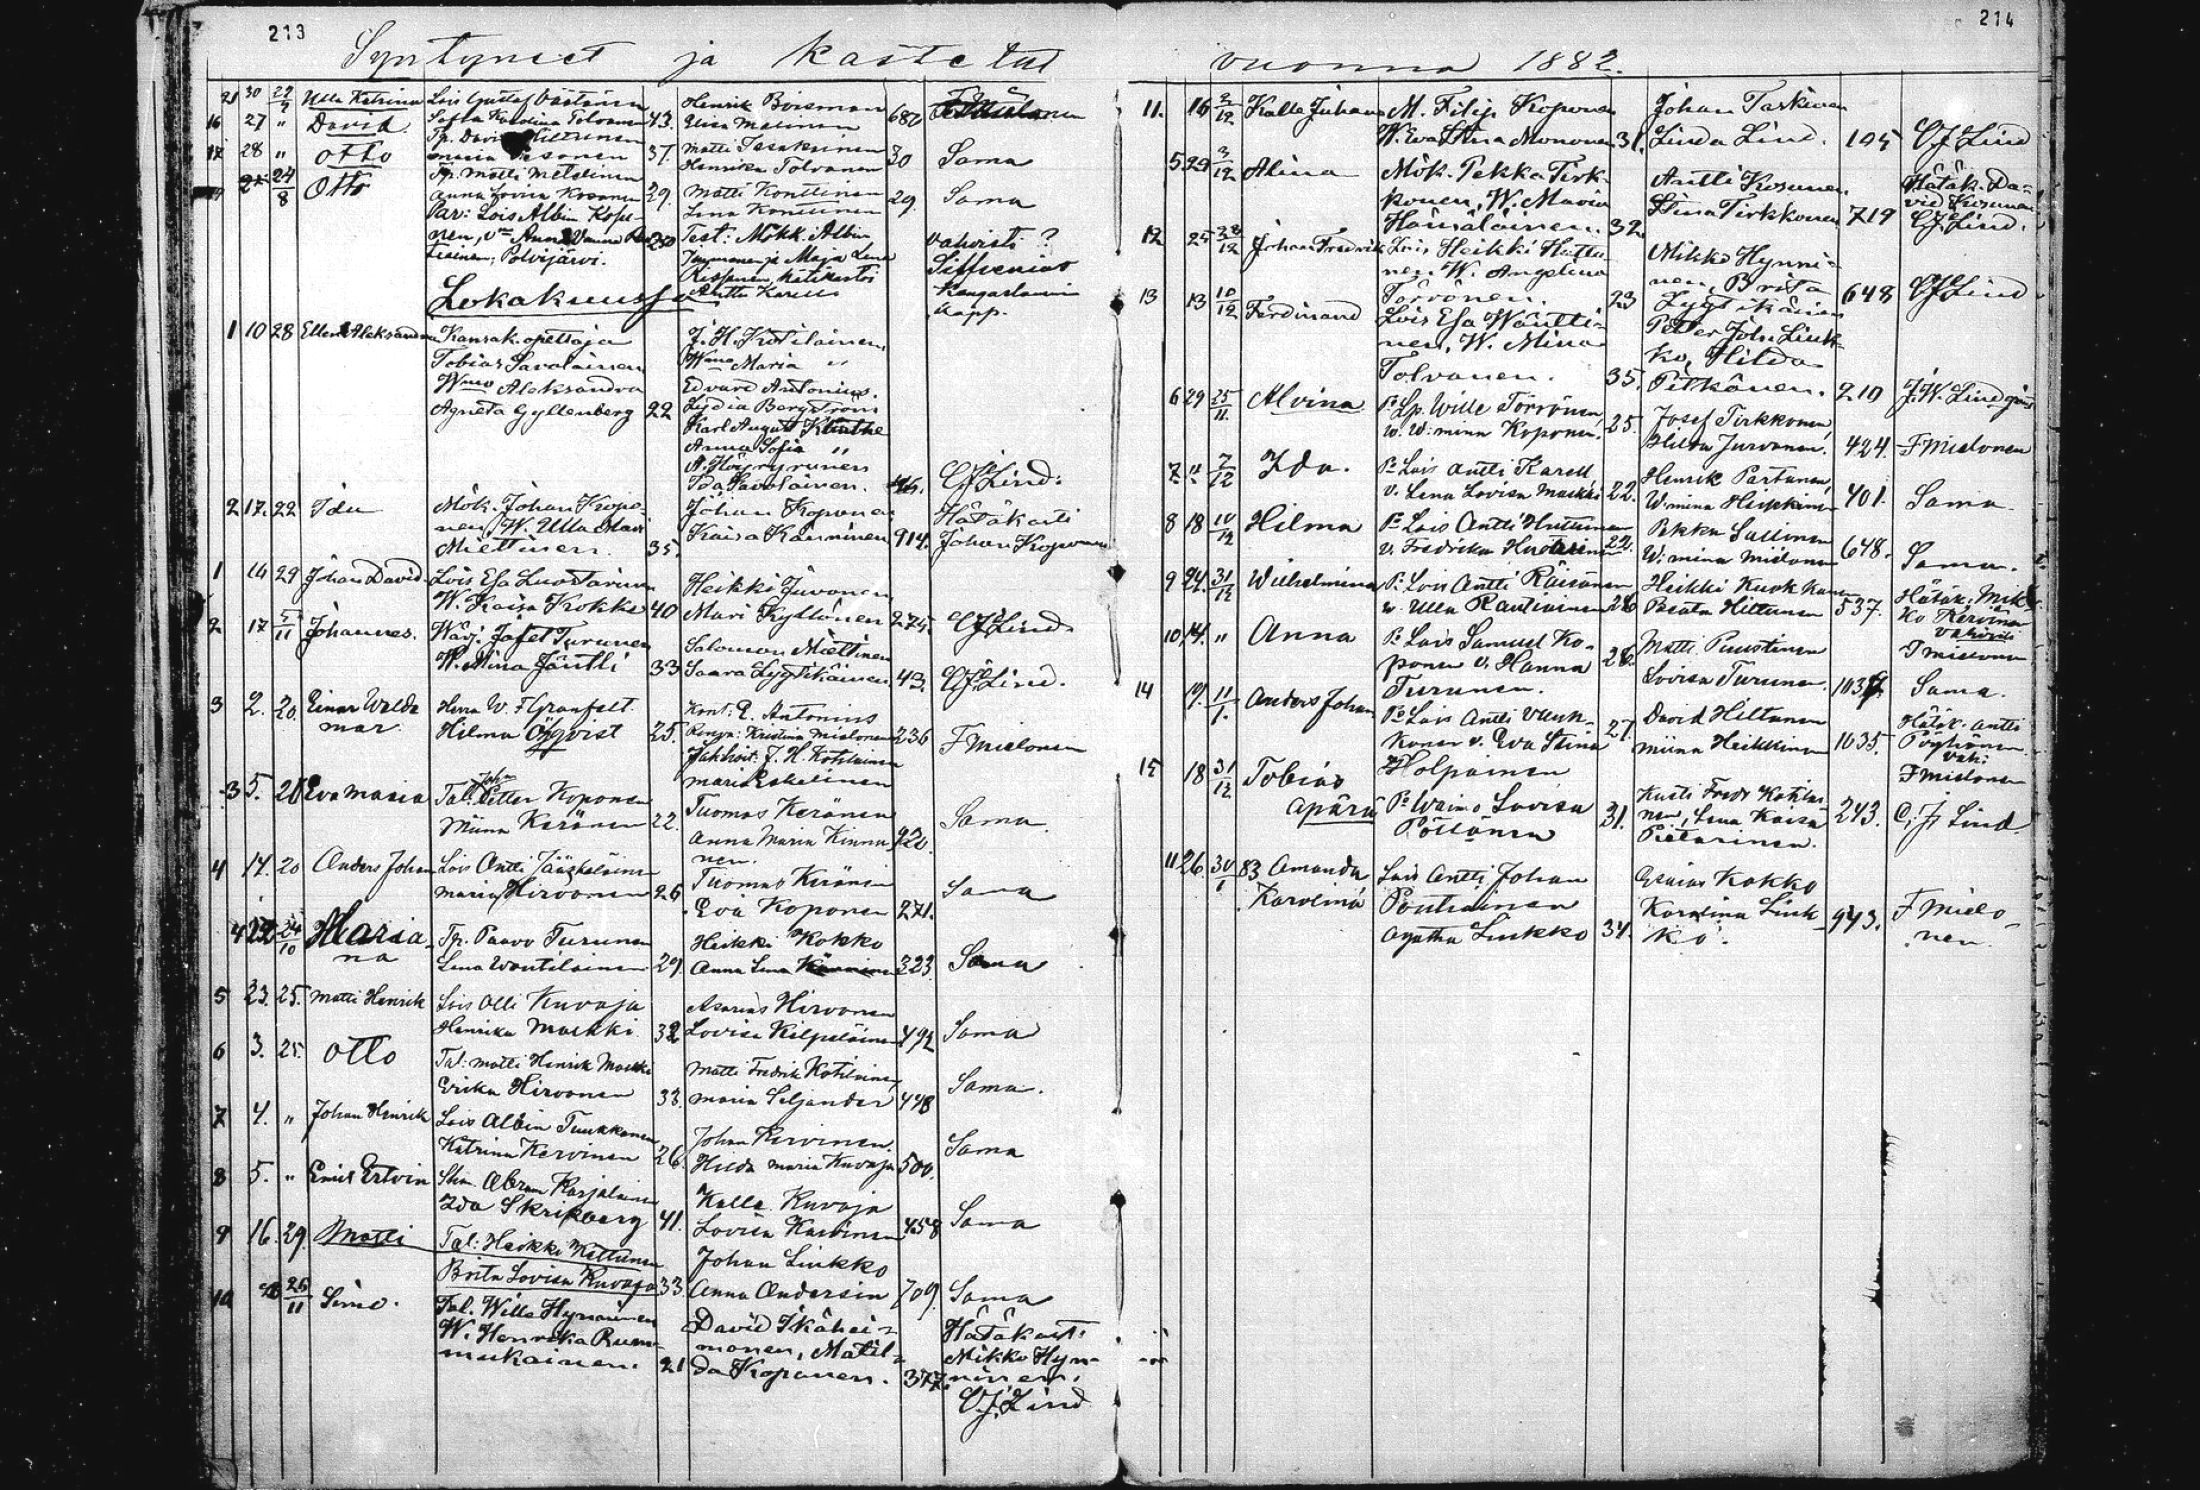 213
Syntyneet ja kastetut
21 30 29/9 Ulla Katrina Lois Gustaf Väätäinen Henrik Boisman
Sofia Karolina Tolvanen 43. Elisa Malinen 680
16 27 " David. Tp. David Hiltunen Matti Sasakunen
Maria 37. Henrika Tolvanen 30 Sama
17 28 " Otto Tp. Matti Meteläinen Matti Konttinen
Anna Lovisa Kosonen 29. Lina Konttinen 29. Sama
24/8 Otto Par: Lois Albin Kopo-
nen, Anna 250 Test: Mökk. Albin vahvisti ?
Polvijärvi. ja Maja Lena
Rissanen, hätäkasti
Antti Karell Kangaslammin
kapp.
Lokakuussa
1 10 28 Ellen Aleksandra Kansak. opettaja J. H. Kotilainen
Tobias Savolainen Wmo Maria "
Wmo Aleksandra Edvard Antonius.
Agneta Gyllenberg 22 Lydia Bergström
Karl August
Anna Sofia "
A. Höyrynen
Ida Savolainen. C J Lind.
2 17. 22 Ida Mök. Johan Kopo- Johan Koponen Hätäkasti
nen, W. Ulla Mari Kaisa Känninen 914. Johan Koponen
Miettinen. 35.
1 14 29 Johan David Lois Esa Luostarinen Heikki Juvonen
W. Kaisa Kokko 40 Mari Kyllönen 275. C J Lind.
2 17 5/11 Johannes. Wärj. Jafet Turunen Salomon Miettinen
W. Mina Jäntti 33 Saara Lyytikäinen 43. C J Lind.
3 2. 20. Einar Walde- Herra W. F Granfelt Kont: E. Antonius
mar Hilma Öqvist 25. Rouva: Kristina Mielonen 236 F Mielonen
J. H. Kotilainen
Maria Eskelinen
3 5. 20 Eva Maria Tal: Petter Koponen Tuomas Keränen
Miina Keränen 22. Anna Maria Kinnu- 420. Sama.
nen.
4 14. 20 Anders Johan Lois Antti Jääskeläinen Tuomas Keränen
Maria Hirvonen 26 Eva Koponen 271. Sama
4 22 24/10 Maria- Tp. Paavo Turunen Heikki Kokko
na Lena Wantelainen 29. Anna Lena Känninen 323 Sama
5 23. 25. Matti Henrik Lois Olli Kuvaja Asarias Hirvonen
Henrika Maukki 32 Lovisa Kilpeläinen 492 Sama
6 3. 25. Otto Tal: Matti Henrik Maukki Matti Fredrik Kotilainen
Erika Hirvonen 33. Maria Seljander 448 Sama.
7 4. " Johan Henrik Lois Albin Tuukkanen Johan Kervinen.
Katrina Kervinen 26. Hilda Maria Kuvaja 500. Sama
8 5. " Emil Ervin Abram Karjalainen Kalle Kuvaja
Ida Skrikberg 41. Lovisa 458 Sama
9 16. 29. Matti Tal: Heikki Kettunen Johan Linkko
Brita Lovisa Kuvaja 33. Anna Andersin 709. Sama
10 26/11 Simo. Tal. Wille Hynninen David Ikähei- Hätäkast:
W. Henrika Rum- monen, Matil- Mikko Hyn-
mukainen. 21 da Koponen. 377. ninen.
C J Lind
214
vuonna 1882.
11. 16 3/12 Kalle Juhana M. Filip Koponen Johan Taskinen
W. Eva Stina Mononen 31. Linda Lind. 195 C J Lind
5 29 3/12 Alina Mök. Pekka Tirk- Antti Kosunen. Hätäk. Da-
konen, W. Maria Stina Tirkkonen 719 vid Kosunen
Hämäläinen. 32. C J Lind.
12 25 Johan Fredrik Lois Heikki Hattu- Mikko Hynni-
nen. W. Angelina nen, Brita 648 C J Lind
Törrönen. 23 Lyytikäinen
13 13 10/12 Ferdinand Lois Esa Wäntti- Petter Joh. Link-
nen, W. Mina ko, Hilda
Tolvanen. 35. Pitkänen. 210 J. W. Lindgren
6 29 25/11. Alvina Po Lp. Wille Törrönen Josef Tirkkonen
w. W:mina Koponen. 25. Hilda Jurvanen. 424. F Mielonen
7 " 7/12 Ida. Po Lois Antti Karell Henrik Partanen
v. Lena Lovisa Maukki 22. W:mina Heikkinen 401. Sama.
8 18 10/12 Hilma Po Lois Antti Huttunen Pekka Sallinen
v. Fredrika 22. W:mina Mielonen 648. Sama.
9 24. 31/12 Wilhelmina Po Lois Antti Räisänen Heikki Kuokkanen Hätäk: Mik-
w. Ulla Rautiainen 26 Beata Hiltunen 537. ko Kervinen
vahvisti
10 14. " Anna Po Lois Samuel Ko- Matti Puustinen F Mielonen
ponen v. Hanna 26. Lovisa Turunen. Sama.
Turunen.
14 19. 11/1. Anders Johan Po Lois Antti Vauh- David Hiltunen Hätäk. Antti
konen v. Eva Stina 27. Miina Heikkinen 1035. Pöyhönen
Holpainen vah:
F Mielonen
15 18 31/12 Tobias
apärä Po Waimo Lovisa 31. Kusti Fredr Kotilai- 243. C. J. Lind.
Pöllänen nen, Lena Kaisa
Pietarinen.
11 26. 30/1 83 Amanda Lois Antti Johan Esaias Kokko
Karolina Poutiainen Karolina Link- 943. F Mielo-
Agatha Linkko 34. ko. nen.